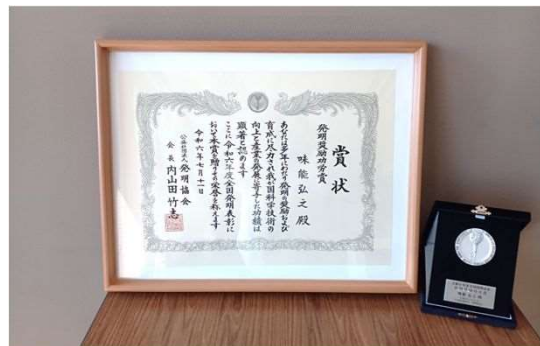 賞状
発明奨励功労賞
味能弘之殿
あなたは多年にわたり発明の奨励および
育成に尽力され我が国科学技術の
向上と産業の発展に寄与した功績は
顕著と認めます
ここに令和六年度全国発明表彰に
おいて本賞を贈りその栄誉を称えます
令和六年七月十一日
公益社団法人発明協会
会長内山田竹志